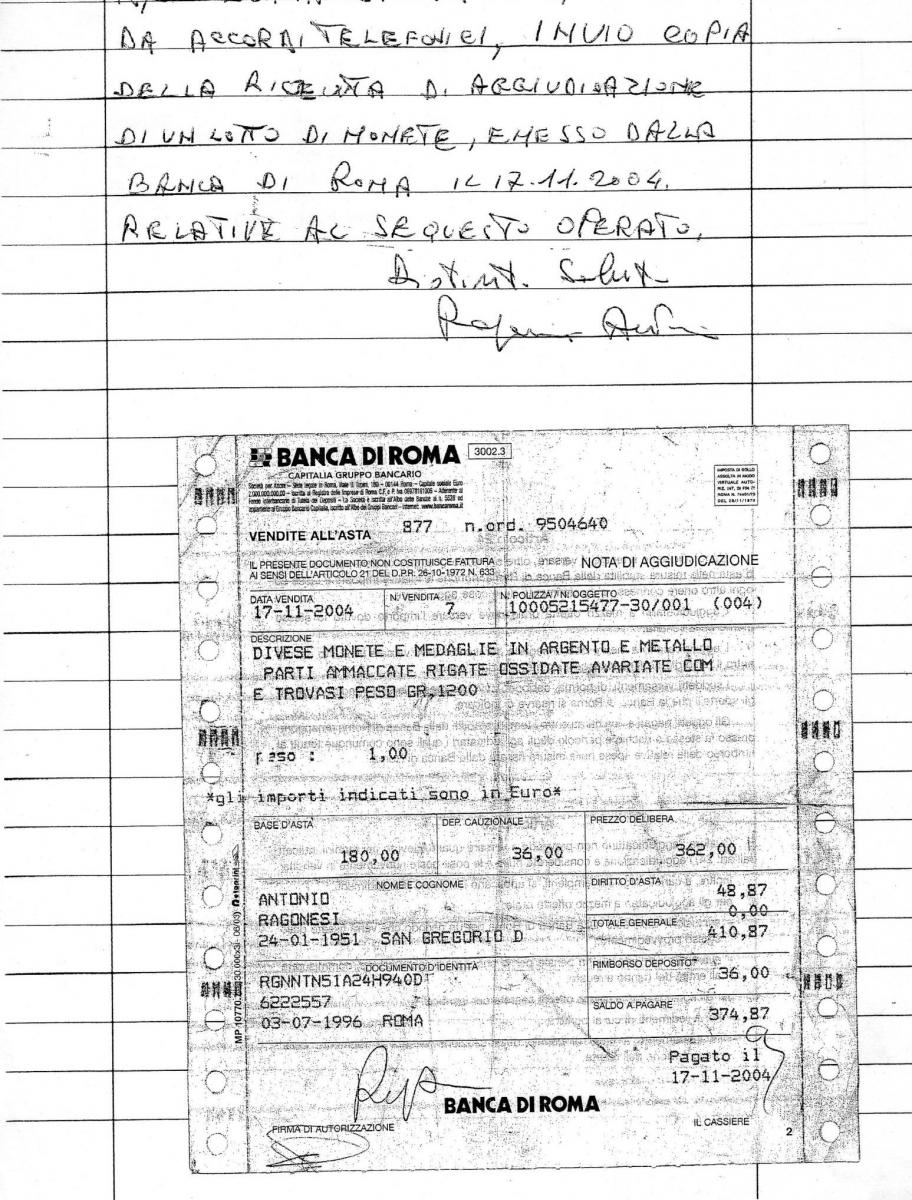 DA ACCORDI TELEFONICI, INVIO COPIA
DELLA RICEVUTA DI AGGIUDICAZIONE
DI UN LOTTO DI MONETE, EMESSO DALLA
BANCA DI ROMA IL 17.11.2004.
RELATIVE AL SEQUESTO OPERATO.
Distint. Saluti
BANCA DI ROMA 3002.3
CAPITALIA GRUPPO BANCARIO
IMPOSTA DI BOLLO
ASSOLTA IN MODO
VIRTUALE
VENDITE ALL'ASTA 877 n.ord. 9504640
IL PRESENTE DOCUMENTO NON COSTITUISCE FATTURA
AI SENSI DELL'ARTICOLO 21 DEL D.P.R. 26-10-1972 N. 633
NOTA DI AGGIUDICAZIONE
DATA VENDITA N. VENDITA N. POLIZZA / N. OGGETTO
17-11-2004 7 10005215477-30/001 (004)
DESCRIZIONE
DIVESE MONETE E MEDAGLIE IN ARGENTO E METALLO
PARTI AMMACCATE RIGATE OSSIDATE AVARIATE COM
E TROVASI PESO GR,1200
peso : 1,00
*gli importi indicati sono in Euro*
BASE D'ASTA DEP. CAUZIONALE PREZZO DELIBERA
180,00 36,00 362,00
NOME E COGNOME DIRITTO D'ASTA
ANTONIO 48,87
RAGONESI 0,00
TOTALE GENERALE
24-01-1951 SAN GREGORIO D 410,87
DOCUMENTO D'IDENTITÀ RIMBORSO DEPOSITO
RGNNTN51A24H940D 36,00
6222557 SALDO A PAGARE
03-07-1996 ROMA 374,87
Pagato il
17-11-2004
BANCA DI ROMA
FIRMA DI AUTORIZZAZIONE IL CASSIERE
2